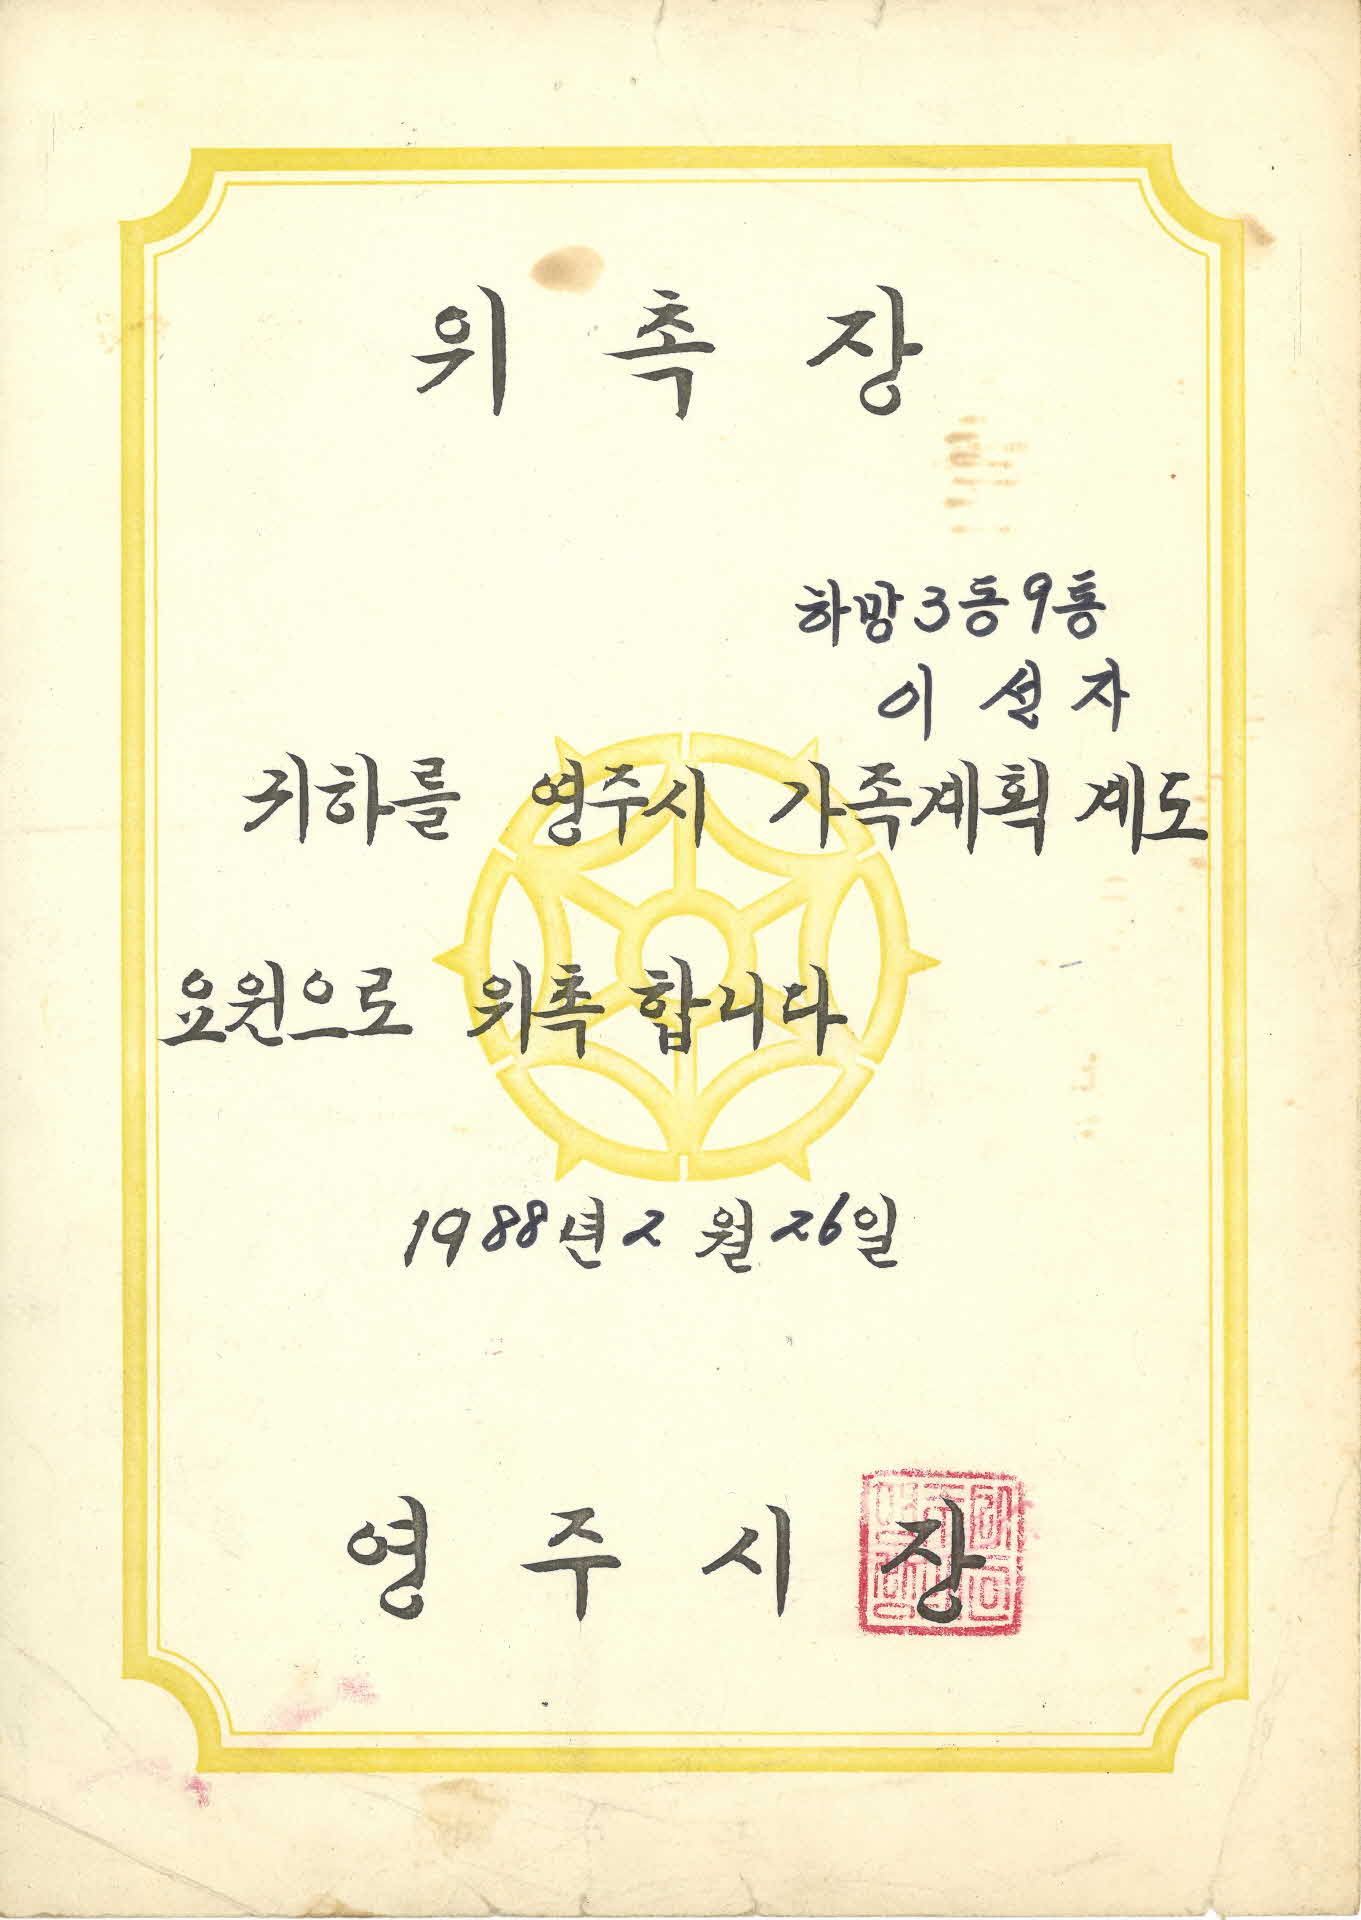 위 촉 장
하망3동9통
이 선 자
귀하를 영주시 가족계획 계도
요원으로 위촉합니다
1988년 2월 26일
영 주 시 장